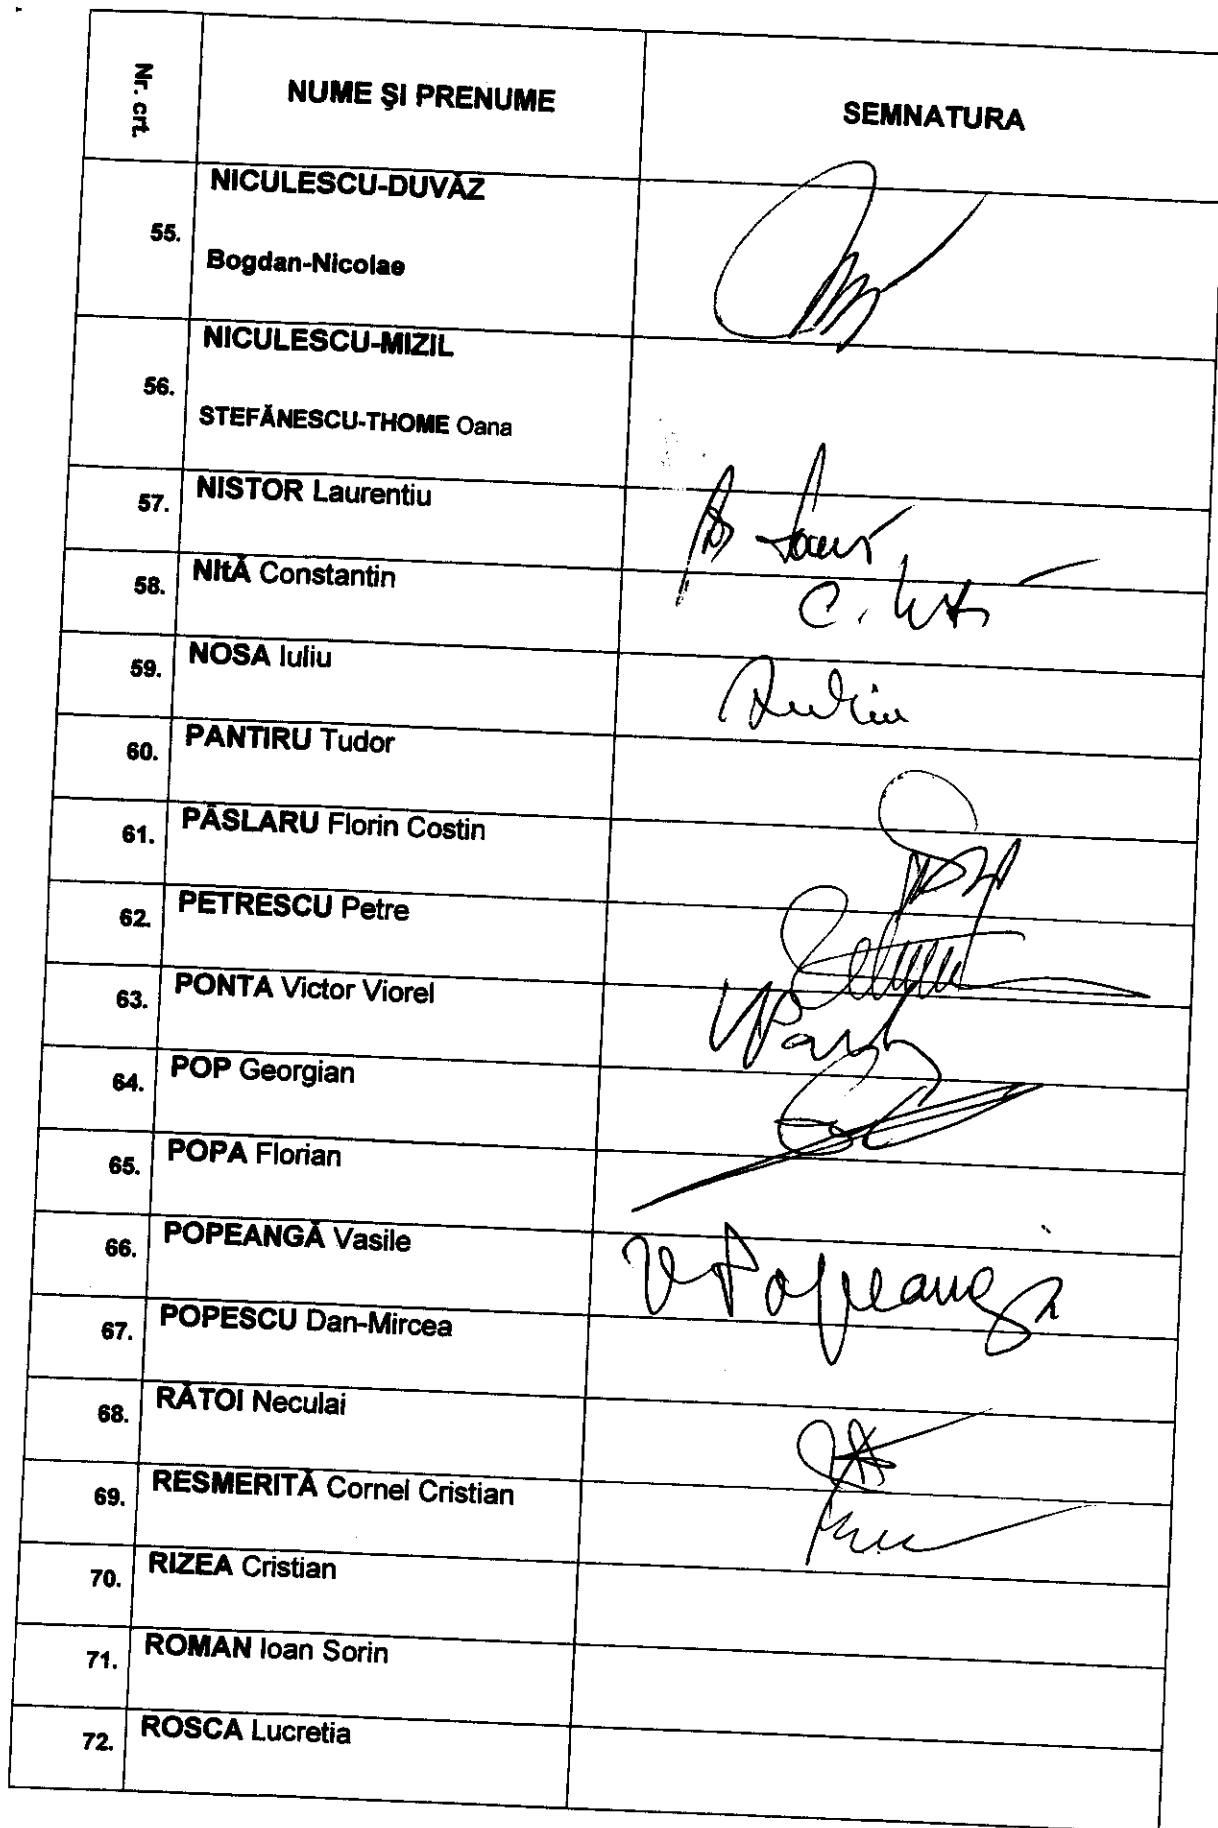 Nr. crt. NUME ŞI PRENUME SEMNATURA
NICULESCU-DUVĂZ
55.
Bogdan-Nicolae
NICULESCU-MIZIL
56.
STEFĂNESCU-THOME Oana
57. NISTOR Laurentiu
58. NItĂ Constantin
59. NOSA Iuliu
60. PANTIRU Tudor
61. PĂSLARU Florin Costin
62. PETRESCU Petre
63. PONTA Victor Viorel
64. POP Georgian
65. POPA Florian
66. POPEANGĂ Vasile V Popeanga
67. POPESCU Dan-Mircea
68. RĂTOI Neculai
69. RESMERITĂ Cornel Cristian
70. RIZEA Cristian
71. ROMAN Ioan Sorin
72. ROSCA Lucretia